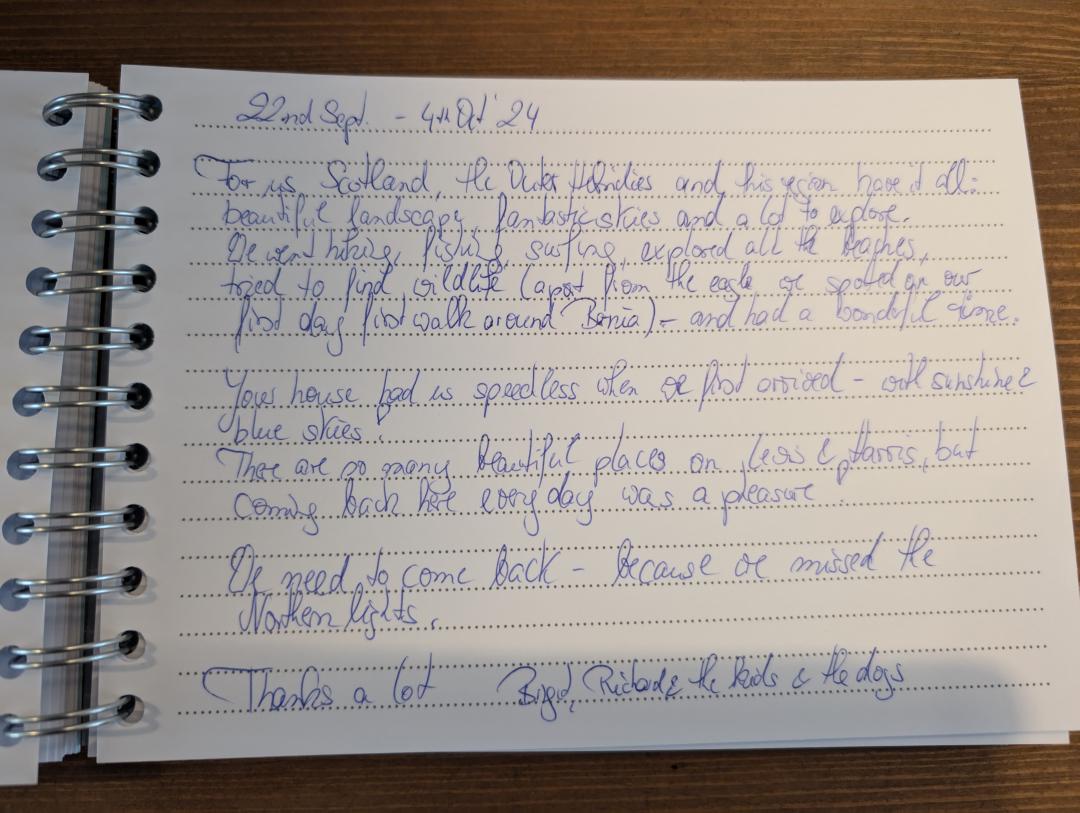 22nd Sept. - 4th Oct '24
For us Scotland, the Outer Hebridies and this region have it all:
beautiful landscape, fantastic skies and a lot to explore.
We went hiking, fishing, surfing, explored all the beaches,
tried to find wildlife (apart from the eagle we spoted on our
first day first walk around ) - and had a wonderful time.
Your house had us speedless when we first arrived - with sunshine &
blue skies!
There are so many beautiful places on Lewis & Harris, but
coming back here every day was a pleasure.
We need to come back - because we missed the
Northern lights.
Thanks a lot Richard & the kids & the dogs